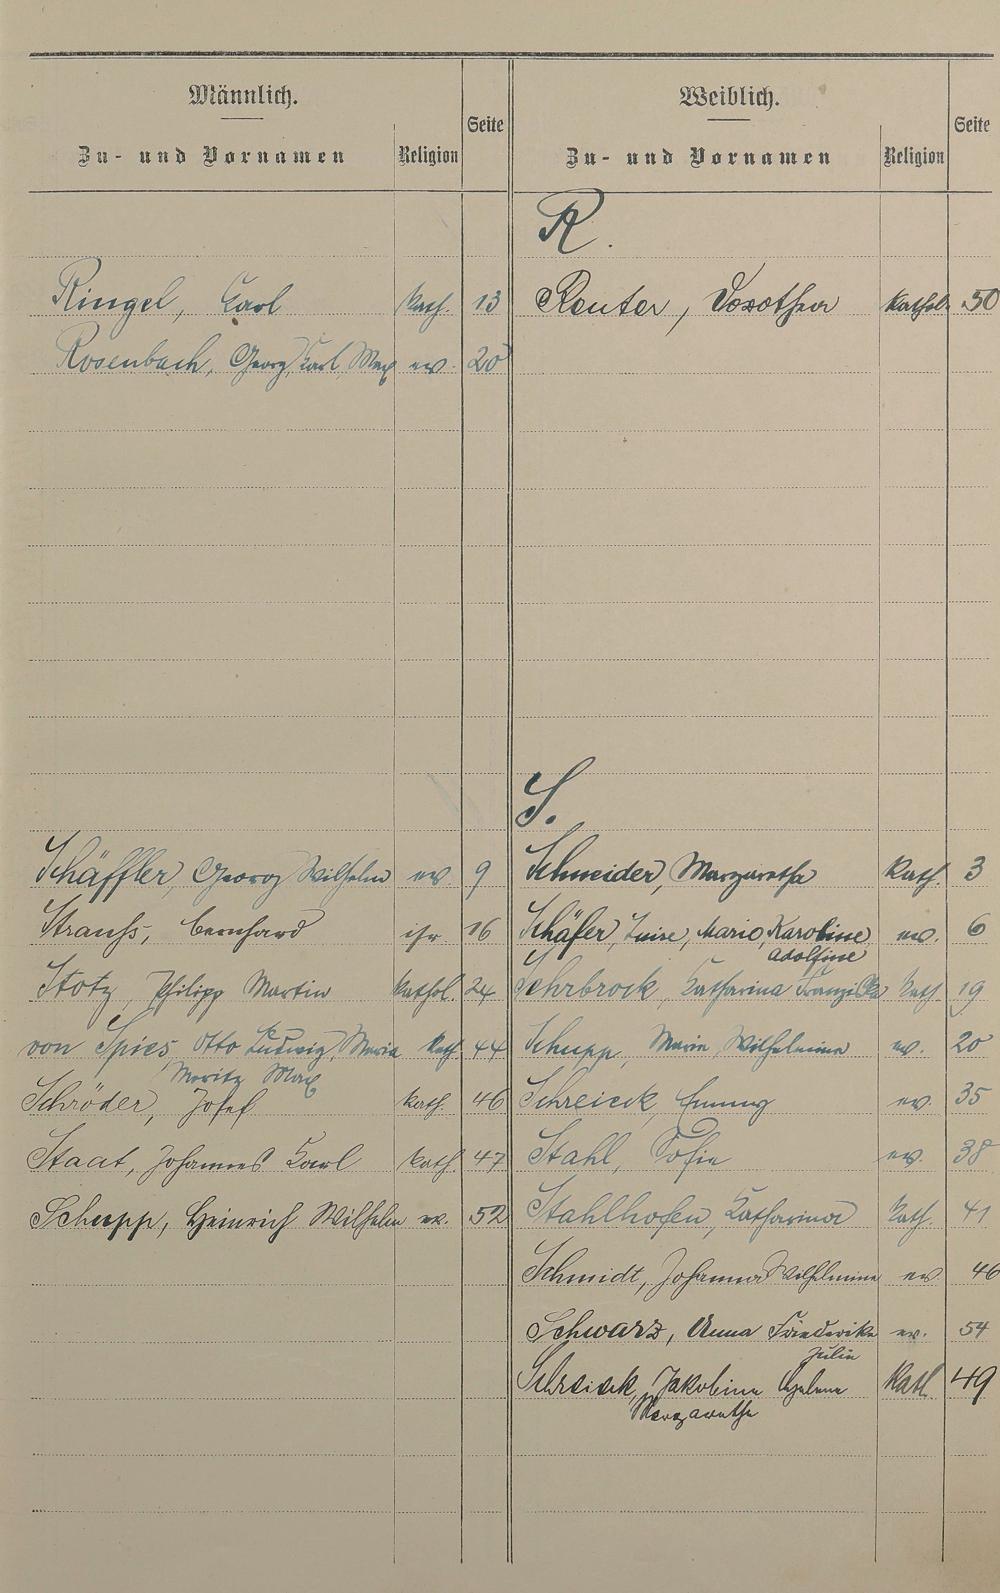 Männlich.
Zu- und Vornamen Religion Seite
Weiblich.
Zu- und Vornamen Religion Seite
R.
Ringel, Carl kath. 13
Reuter, Dorothea kathol. 50
Rosenbach, Georg Karl Max ev. 20
S.
Schäffler, Georg Wilhelm ev. 9
Schneider, Margaretha kath. 3
Strauß, Bernhard isr 16
Schäfer, Luise, Marie, Karoline ev. 6
Adolfine
Stotz, Philipp Martin kathol. 24
Sehrbrock, Katharina Franziska kath. 19
von Spies, Otto Ludwig, Maria kath. 44
Moritz Max
Schupp, Marie Wilhelmine ev. 20
Schröder, Josef kath. 46
Schreieck, Emmy ev. 35
Staat, Johannes Karl kath. 47
Stahl, Sofie ev. 38
Schupp, Heinrich Wilhelm ev. 52
Stahlhofen, Katharina kath. 41
Schmidt, Johanna Wilhelmine ev. 46
Schwarz, Anna Friederike ev. 54
Julie
Schreieck, Jakobine Helene kath. 49
Margarethe